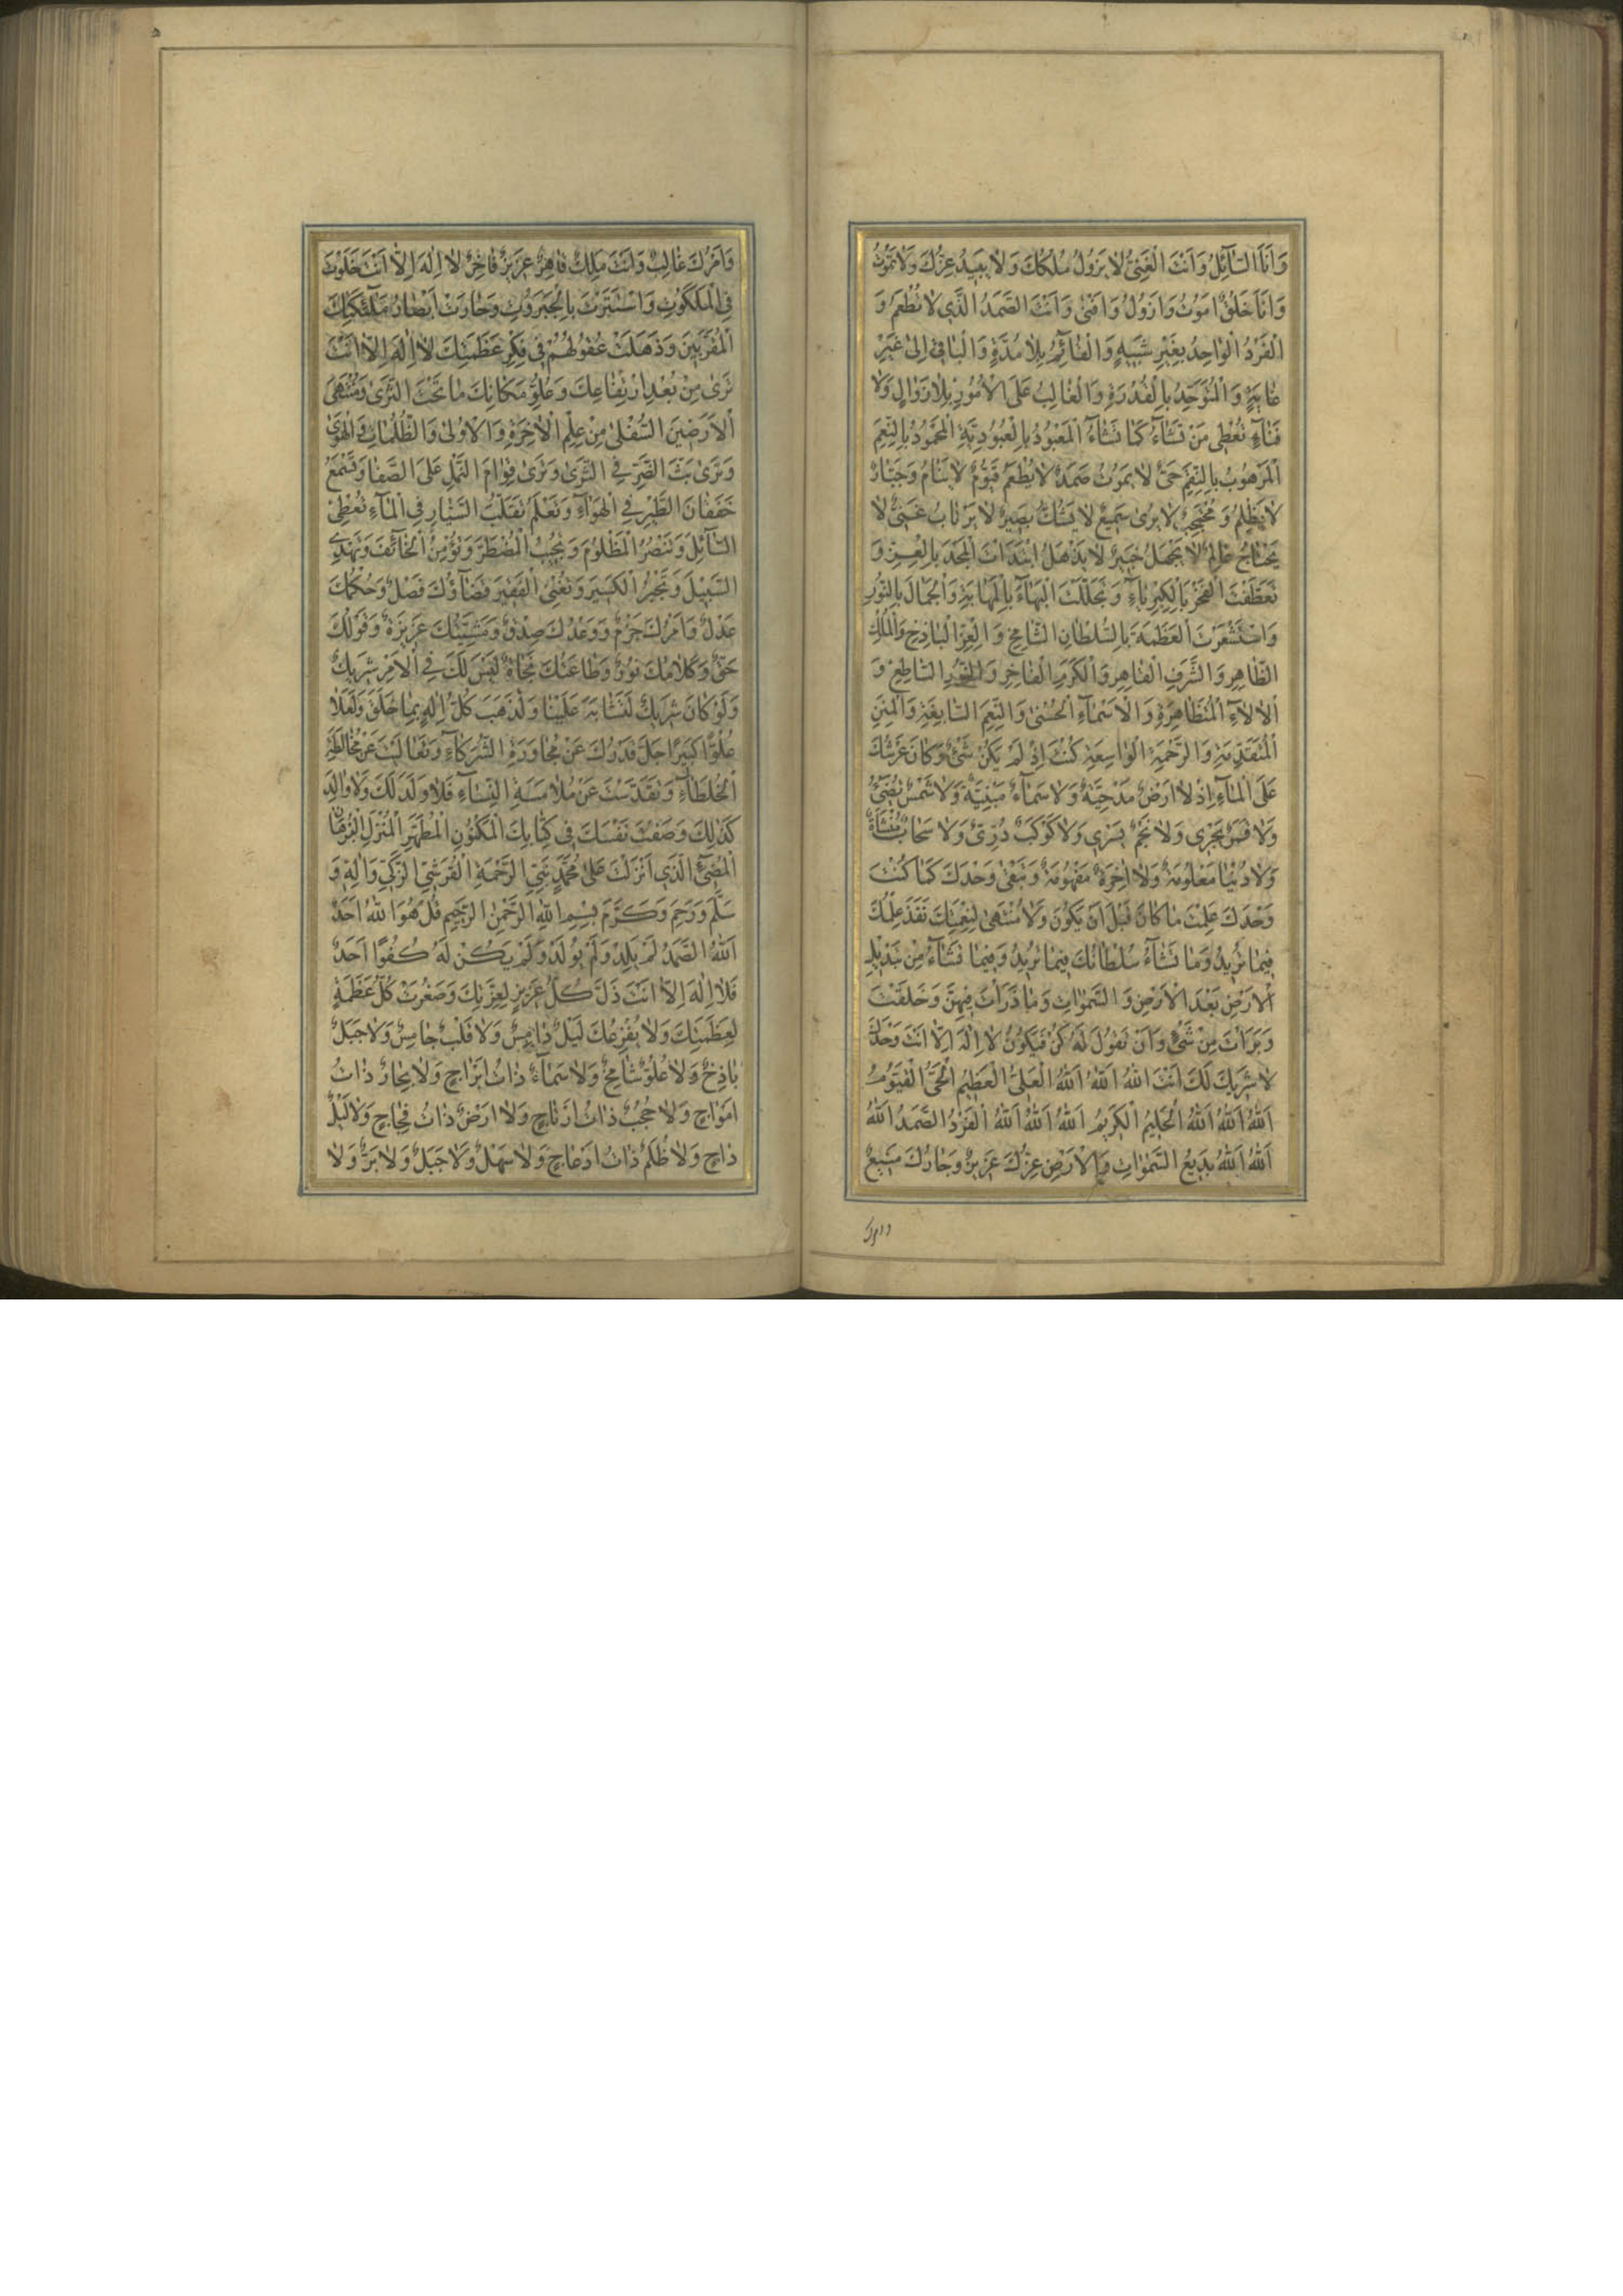 وَاَنَا السَّآئِلُ وَاَنْتَ الْغَنِيُّ لا يَزُولُ مُلْكُكَ وَلا يَبيدُ عِزُّكَ وَلا تَمُوتُ
وَاَنَا خَلْقٌ اَمُوتُ وَاَزُولُ وَاَفْنى وَاَنْتَ الصَّمَدُ الَّذي لا تُطْعَمُ وَ
الْفَرْدُ الْواحِدُ بِغَيْرِ شَبيهٍ وَالْقآئِمُ بِلا مُدَّةٍ وَالْباقي اِلى غَيْرِ
غايَةٍ وَالْمُتَوَحِّدُ بِالْقُدْرَةِ وَالْغالِبُ عَلَى الْاُمُورِ بِلا زَوالٍ وَلا
فَنآءٍ تُعْطي مَنْ تَشآءُ كَما تَشآءُ الْمَعْبُودُ بِالْعُبُودِيَّةِ الْمَحْمُودُ بِالنِّعَمِ
الْمَرْهُوبُ بِالنِّقَمِ حَيٌّ لا يَمُوتُ صَمَدٌ لا يُطْعَمُ قَيُّومٌ لا يَنامُ وَجَبّارٌ
لا يَظْلِمُ وَمُحْتَجِبٌ لا يُرى سَميعٌ لا يَشُكُّ بَصيرٌ لا يَرْتابُ غَنِيٌّ لا
يَحْتاجُ عالِمٌ لا يَجْهَلُ خَبيرٌ لا يَذْهَلُ ابْتَدَأْتَ الْمَجْدَ بِالْعِزِّ وَ
تَعَطَّفْتَ الْفَخْرَ بِالْكِبْرِيآءِ وَتَجَلَّلْتَ الْبَهآءَ بِالْمَهابَةِ وَالْجَمالَ بِالنُّورِ
وَاسْتَشْعَرْتَ الْعَظَمَةَ بِالسُّلْطانِ الشّامِخِ وَالْعِزِّ الْباذِخِ وَالْمُلْكِ
الظّاهِرِ وَالشَّرَفِ الْقاهِرِ وَالْكَرَمِ الْفاخِرِ وَالنُّورِ السّاطِعِ وَ
الْآلآءِ الْمُتَظاهِرَةِ وَالْاَسْمآءِ الْحُسْنى وَالنِّعَمِ السّابِغَةِ وَالْمِنَنِ
الْمُتَقَدِّمَةِ وَالرَّحْمَةِ الْواسِعَةِ كُنْتَ اِذْ لَمْ يَكُنْ شَيْءٌ وَكانَ عَرْشُكَ
عَلَى الْمآءِ اِذْ لا اَرْضٌ مَدْحِيَّةٌ وَلا سَمآءٌ مَبْنِيَّةٌ وَلا شَمْسٌ تُضيءُ
وَلا قَمَرٌ يَجْري وَلا نَجْمٌ يَسْري وَلا كَوْكَبٌ دُرِّيٌّ وَلا سَحابَةٌ مُنْشَأَةٌ
وَلا دُنْيا مَعْلُومَةٌ وَلا آخِرَةٌ مَفْهُومَةٌ وَتَبْقى وَحْدَكَ كَما كُنْتَ
وَحْدَكَ عَلِمْتَ ما كانَ قَبْلَ اَنْ يَكُونَ وَلا مُنْتَهى لِنِعْمَتِكَ نَفَذَ عِلْمُكَ
فيما تُريدُ وَما تَشآءُ سُلْطانُكَ فيما تُريدُ وَفيما تَشآءُ مِنْ تَبْديلِ
الْاَرْضِ بَعْدَ الْاَرْضِ وَالسَّمواتِ وَما ذَرَأْتَ فيهِنَّ وَخَلَقْتَ
وَبَرَأْتَ مِنْ شَيْءٍ وَاَنْ تَقُولَ لَهُ كُنْ فَيَكُونُ لا اِلهَ اِلّا اَنْتَ وَحْدَكَ
لا شَريكَ لَكَ اَنْتَ اللهُ اَللهُ اَللهُ الْعَلِيُّ الْعَظيمُ الْحَيُّ الْقَيُّومُ
اَللهُ اَللهُ اَللهُ الْحَليمُ الْكَريمُ اَللهُ اَللهُ اَللهُ الْفَرْدُ الصَّمَدُ اَللهُ
اَللهُ اَللهُ بَديعُ السَّمواتِ وَالْاَرْضِ عِزُّكَ عَزيزٌ وَجارُكَ مَنيعٌ
وامرك
وَاَمْرُكَ غالِبٌ وَاَنْتَ مَلِكٌ قاهِرٌ عَزيزٌ فاخِرٌ لا اِلهَ اِلّا اَنْتَ خَلَوْتَ
فِي الْمَلَكُوتِ وَاسْتَتَرْتَ بِالْجَبَرُوتِ وَحارَتْ اَبْصارُ مَلآئِكَتِكَ
الْمُقَرَّبينَ وَذَهَلَتْ عُقُولُهُمْ في فِكْرِ عَظَمَتِكَ لا اِلهَ اِلّا اَنْتَ
تَرى مِنْ بُعْدِ ارْتِفاعِكَ وَعُلُوِّ مَكانِكَ ما تَحْتَ الثَّرى وَمُنْتَهَى
الْاَرَضينَ السُّفْلى مِنْ عِلْمِ الْآخِرَةِ وَالْاُولى وَالظُّلُماتِ وَالْهَوى
وَتَرى بَثَّ الذَّرِّ فِي الثَّرى وَتَرى قِوامَ النَّمْلِ عَلَى الصَّفا وَتَسْمَعُ
خَفَقانَ الطَّيْرِ فِي الْهَوآءِ وَتَعْلَمُ تَقَلُّبَ السّارِ فِي الْمآءِ تُعْطِي
السّآئِلَ وَتَنْصُرُ الْمَظْلُومَ وَتُجيبُ الْمُضْطَرَّ وَتُؤْمِنُ الْخآئِفَ وَتَهْدِي
السَّبيلَ وَتَجْبُرُ الْكَسيرَ وَتُغْنِي الْفَقيرَ قَضآؤُكَ فَصْلٌ وَحُكْمُكَ
عَدْلٌ وَاَمْرُكَ جَزْمٌ وَوَعْدُكَ صِدْقٌ وَمَشِيَّتُكَ عَزيزَةٌ وَقَوْلُكَ
حَقٌّ وَكَلامُكَ نُورٌ وَطاعَتُكَ نَجاةٌ لَيْسَ لَكَ فِي الْاَمْرِ شَريكٌ
وَلَوْ كانَ شَريكٌ لَتَشابَهَ عَلَيْنا وَلَذَهَبَ كُلُّ اِلهٍ بِما خَلَقَ وَلَعَلا
عُلُوًّا كَبيرًا جَلَّ قَدْرُكَ عَنْ مُجاوَرَةِ الشُّرَكآءِ وَتَعالَيْتَ عَنْ مُخالَطَةِ
الْخُلَطآءِ وَتَقَدَّسْتَ عَنْ مُلامَسَةِ النِّسآءِ فَلا وَلَدَ لَكَ وَلا والِدَ
كَذلِكَ وَصَفْتَ نَفْسَكَ في كِتابِكَ الْمَكْنُونِ الْمُطَهَّرِ الْمُنْزَلِ الْبُرْهانِ
الْمُضيءِ الَّذي اَنْزَلْتَ عَلى مُحَمَّدٍ نَبِيِّ الرَّحْمَةِ الْقُرَشِيِّ الزَّكِيِّ وَآلِهِ وَ
سَلَّمَ وَرَحِمَ وَكَرَّمَ بِسْمِ اللهِ الرَّحْمنِ الرَّحيمِ قُلْ هُوَ اللهُ اَحَدٌ
اَللهُ الصَّمَدُ لَمْ يَلِدْ وَلَمْ يُولَدْ وَلَمْ يَكُنْ لَهُ كُفُوًا اَحَدٌ
فَلا اِلهَ اِلّا اَنْتَ ذَلَّ كُلُّ عَزيزٍ لِعِزَّتِكَ وَصَغُرَتْ كُلُّ عَظَمَةٍ
لِعَظَمَتِكَ وَلا يُفْزِعُكَ لَيْلٌ دامِسٌ وَلا قَلْبٌ جامِسٌ وَلا جَبَلٌ
باذِخٌ وَلا عُلُوٌّ شامِخٌ وَلا سَمآءٌ ذاتُ اَبْراجٍ وَلا بِحارٌ ذاتُ
اَمْواجٍ وَلا حُجُبٌ ذاتُ اَرْتاجٍ وَلا اَرْضٌ ذاتُ فِجاجٍ وَلا لَيْلٌ
داجٍ وَلا ظُلَمٌ ذاتُ اَدْعاجٍ وَلا سَهْلٌ وَلا جَبَلٌ وَلا بَرٌّ وَلا